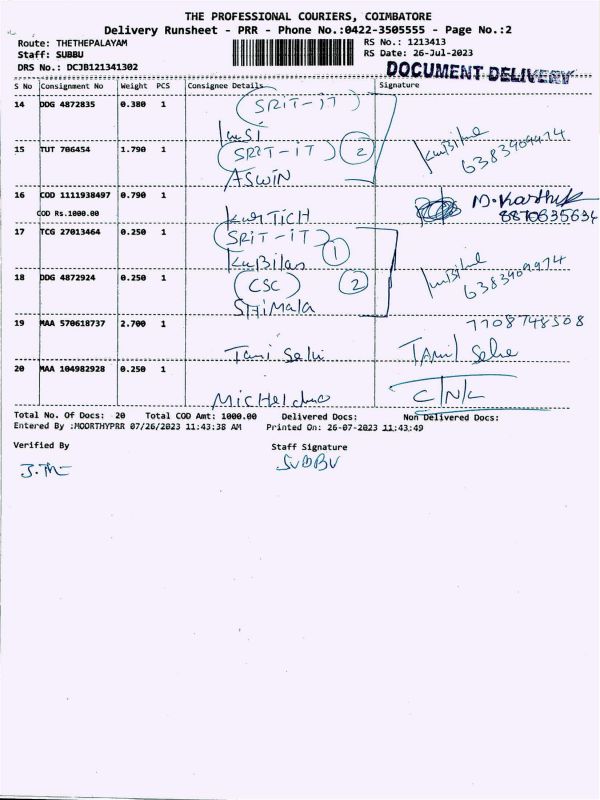 THE PROFESSIONAL COURIERS, COIMBATORE
Delivery Runsheet - PRR - Phone No.:0422-3505555 - Page No.:2
Route: THETHEPALAYAM RS No.: 1213413
Staff: SUBBU RS Date: 26-Jul-2023
DRS No.: DCJB121341302 DOCUMENT DELIVERY
S No Consignment No Weight PCS Consignee Details Signature
14 DDG 4872835 0.380 1 SRIT-IT
15 TUT 706454 1.790 1 SRIT-IT 2 6383909974
ASWIN
16 COD 1111938497 0.790 1 M.Karthik
COD Rs.1000.00 8870635634
17 TCG 27013464 0.250 1 SRIT-IT
KuBilan 1
18 DDG 4872924 0.250 1 CSC 2 6383909974
SHiMala
19 MAA 570618737 2.700 1 7708748508
Tami Selvi Tamil Selve
20 MAA 104982928 0.250 1
Total No. Of Docs: 20 Total COD Amt: 1000.00 Delivered Docs: Non Delivered Docs:
Entered By :MOORTHYPRR 07/26/2023 11:43:38 AM Printed On: 26-07-2023 11:43:49
Verified By Staff Signature
SUBBU